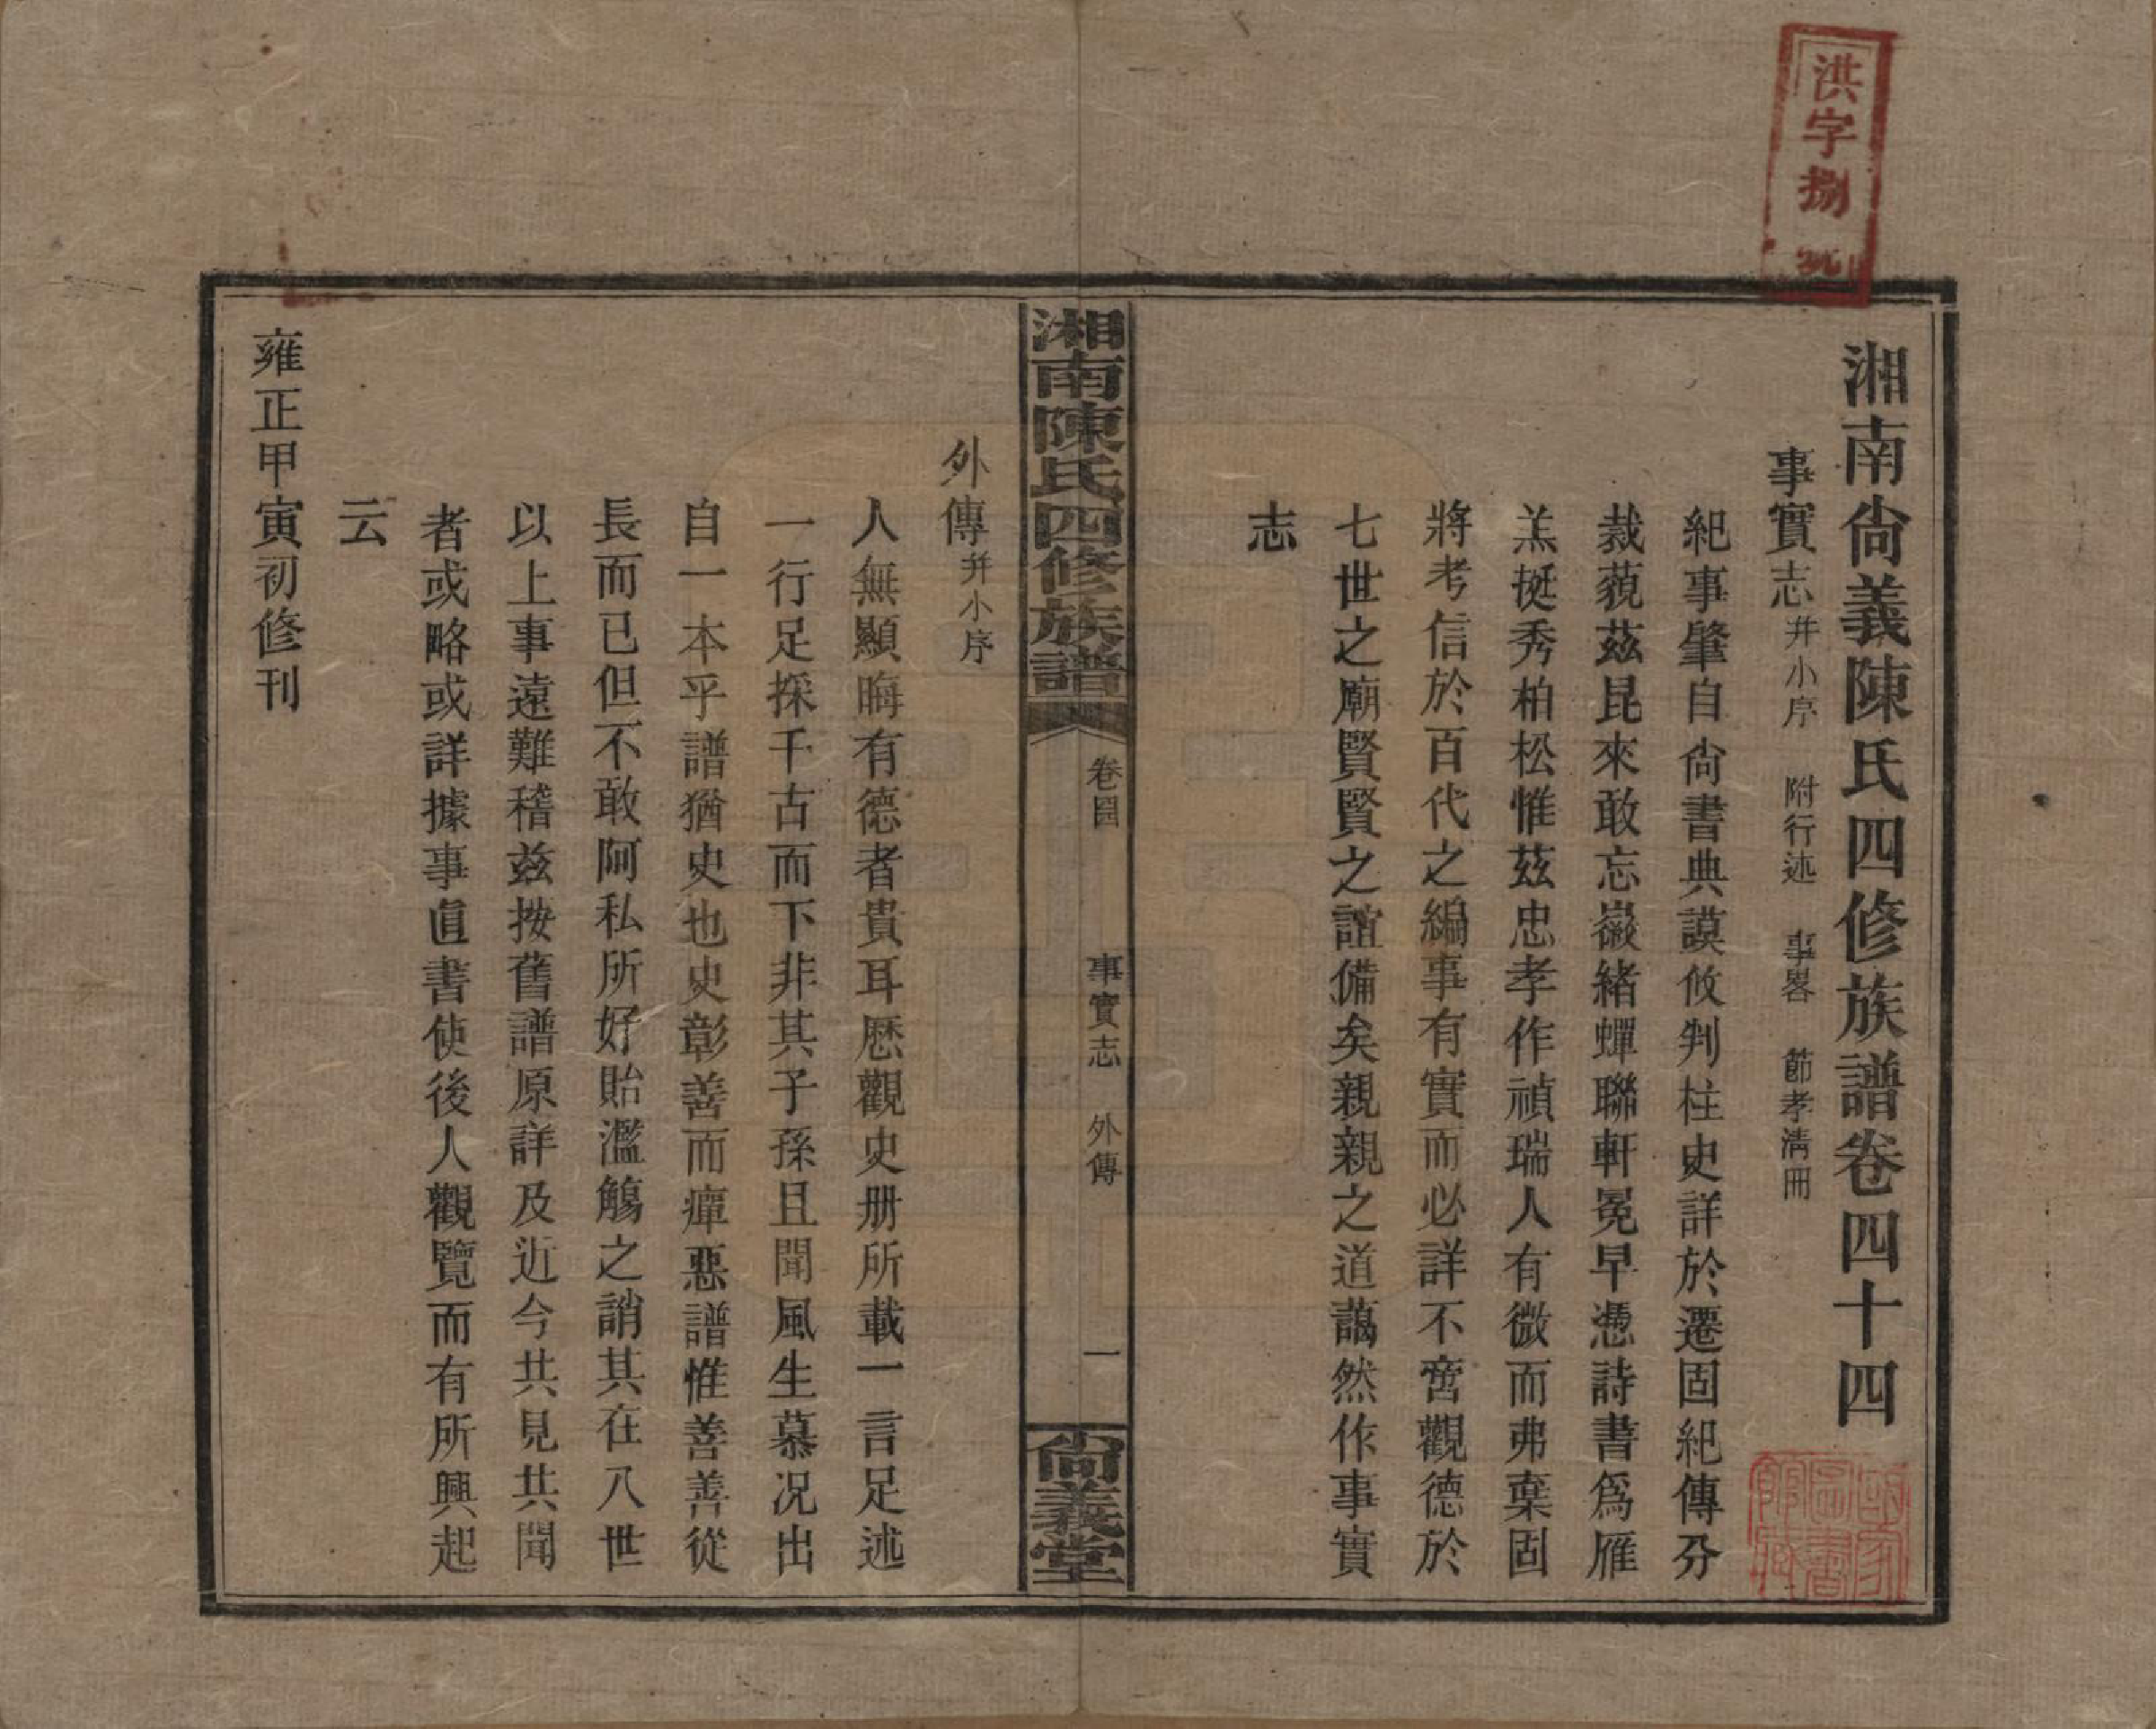 洪字捌號
湘南尙義陳氏四修族譜卷四十四
事實志并小序　附行述　事畧　節孝淸冊
紀事肇自尙書典謨攸判柱史詳於遷固紀傳分
裁藐茲昆來敢忘嶶緒蟬聯軒冕早憑詩書爲雁
羔挺秀柏松惟茲忠孝作禎瑞人有微而弗棄固
將考信於百代之編事有實而必詳不啻觀德於
七世之廟賢賢之誼備矣親親之道藹然作事實
志
湘南陳氏四修族譜　卷四四　事實志　外傳　一　尙義堂
外傳并小序
人無顯晦有德者貴耳歷觀史册所載一言足述
一行足採千古而下非其子孫且聞風生慕况出
自一本乎譜猶史也史彰善而癉惡譜惟善善從
長而已但不敢阿私所好貽濫觴之誚其在八世
以上事遠難稽茲按舊譜原詳及近今共見共聞
者或略或詳據事直書使後人觀覽而有所興起
云
雍正甲寅初修刊